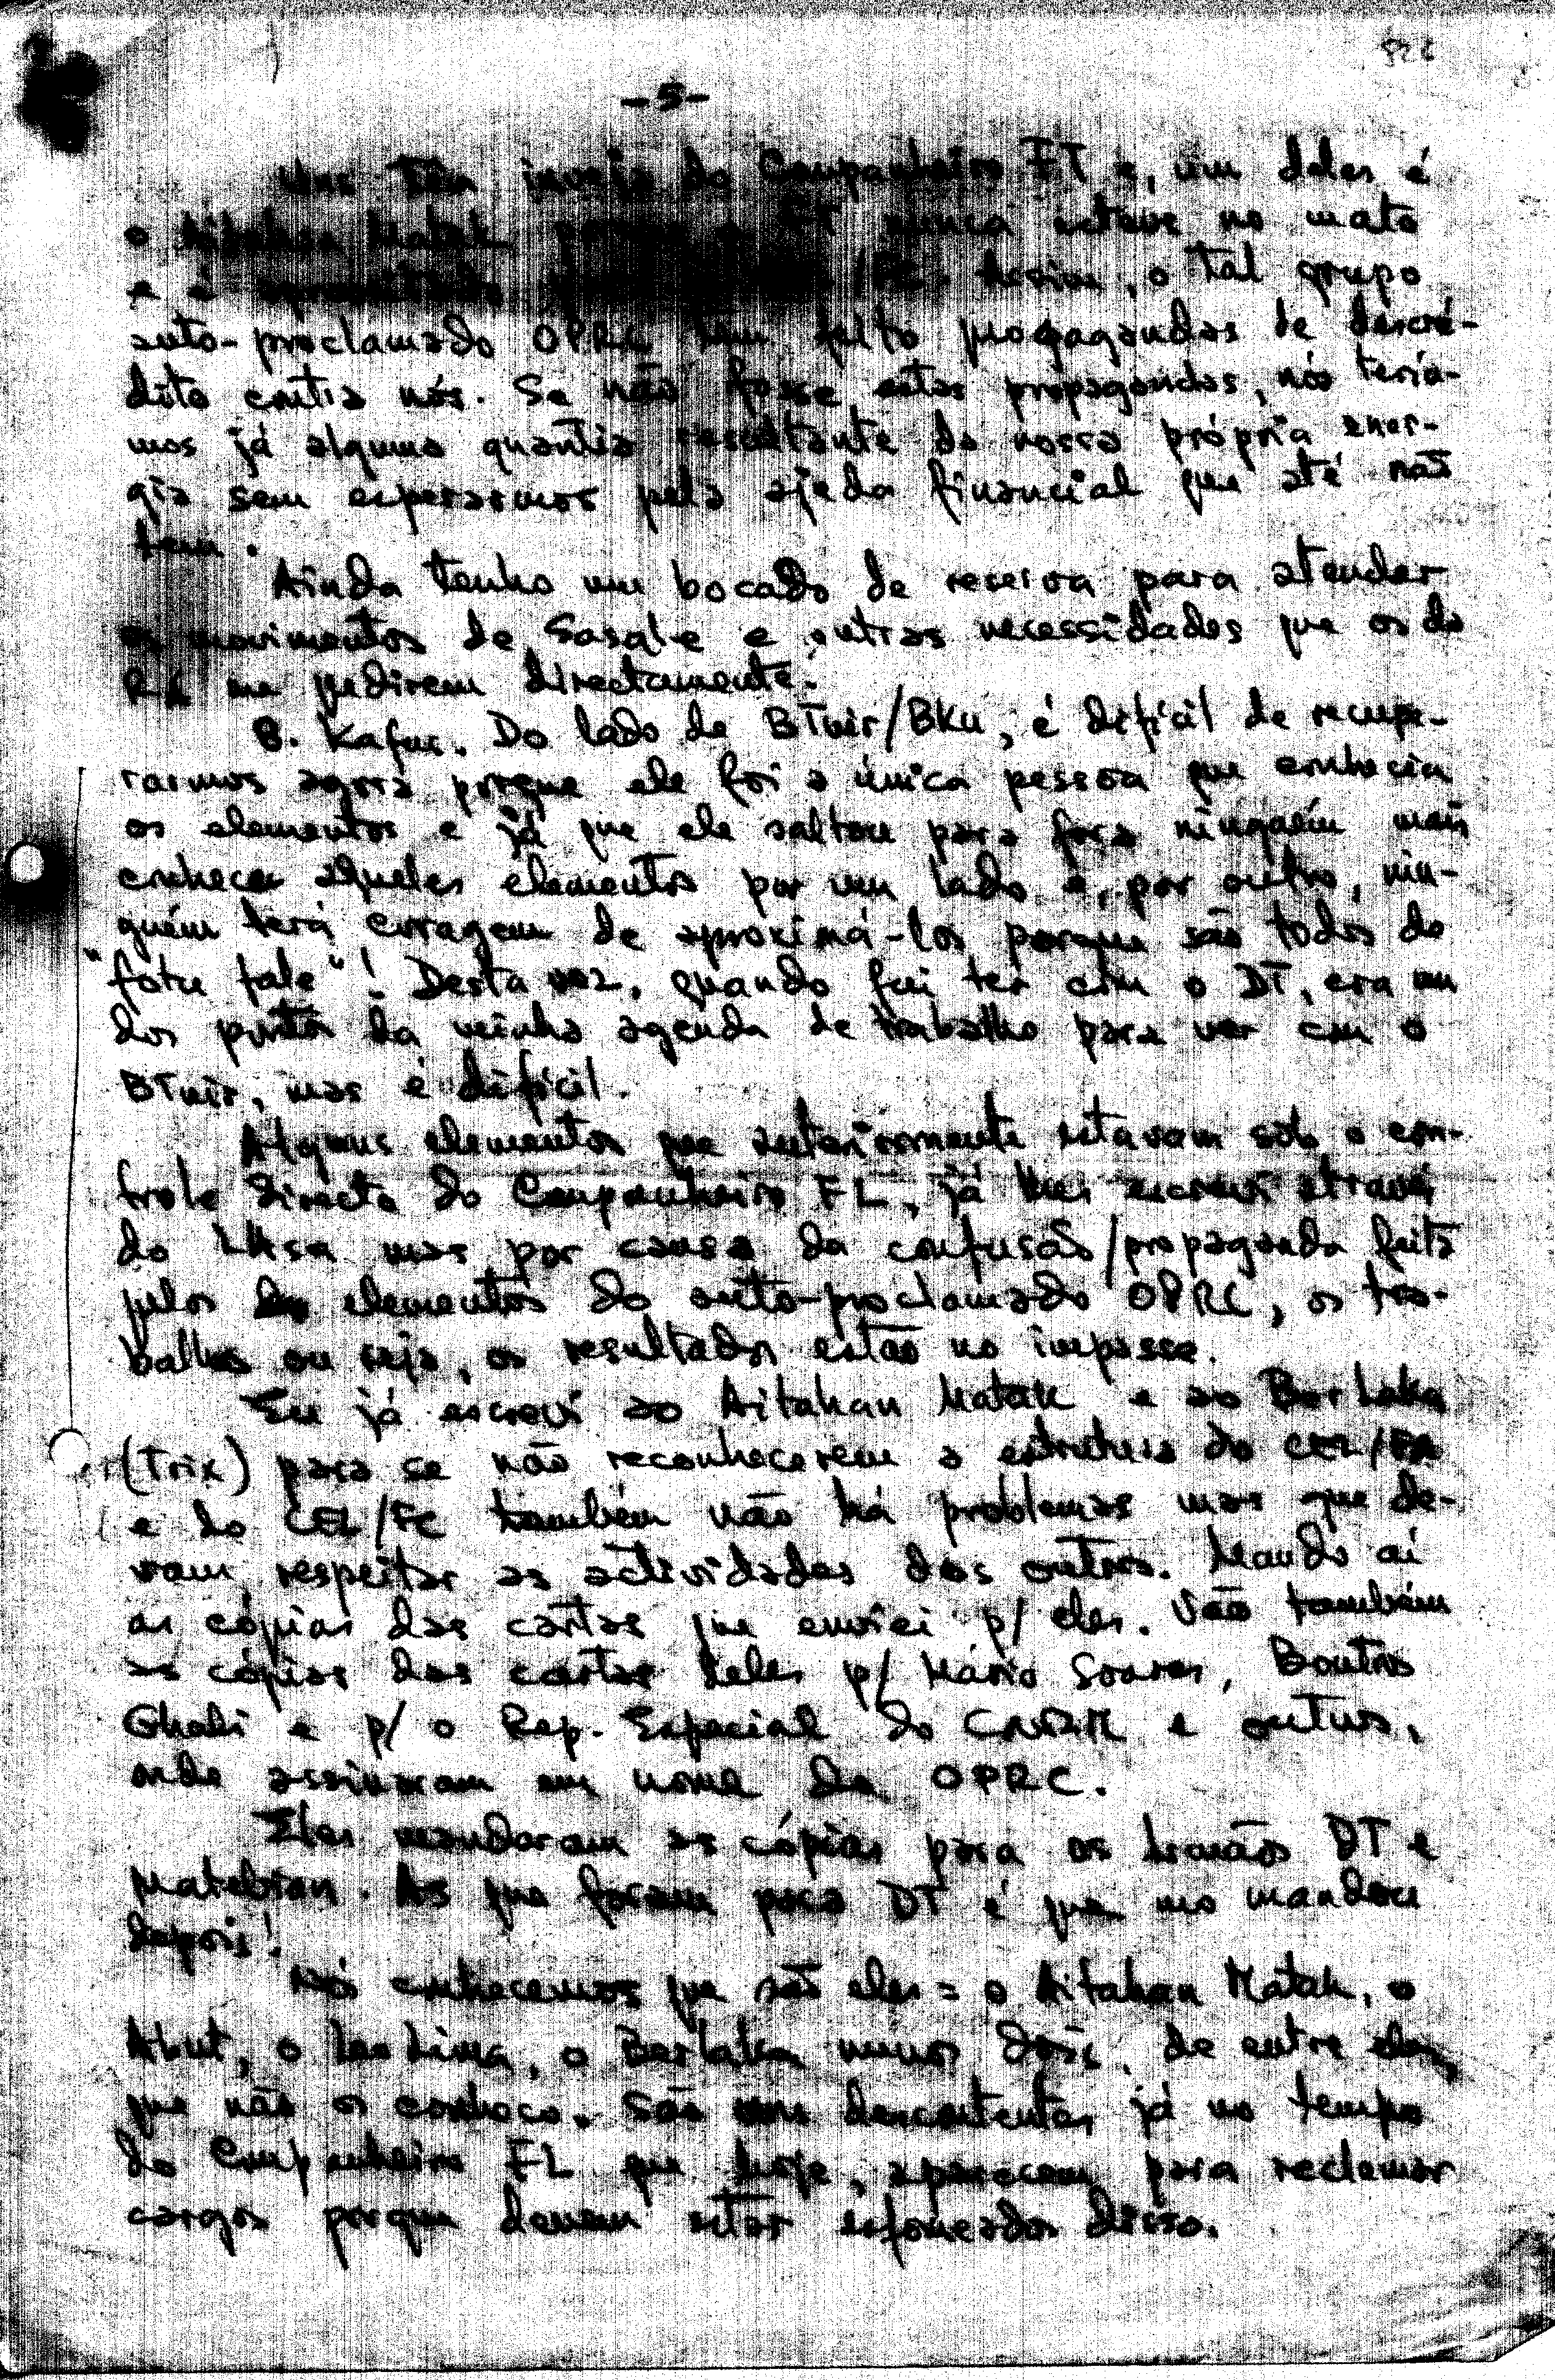 -5-
Uns têm inveja do Companheiro FT e, um deles é
o Aitahan Matak, porque o FT nunca esteve no mato
e é aproveitado /FC. Assim, o tal grupo
auto-proclamado OPRC tem feito propagandas de descré-
dito contra nós. Se não fosse estas propagandas, nós tería-
mos já alguma quantia resultante da nossa própria ener-
gia sem esperarmos pela ajuda financial que até não
tem.
Ainda tenho um bocado de reserva para atender
os movimentos de Sasale e outras necessidades que os da
me pedirem directamente.
B. Kafuc. Do lado de BTuir/BKu, é difícil de recupe-
rarmos agora porque ele foi a única pessoa que conhecia
os elementos e já que ele saltou para fora ninguém mais
conhecer aqueles elementos por um lado e, por outro, nin-
guém terá coragem de aproximá-los porque são todos de
"fotu tale"! Desta vez, quando fui ter com o DT, era um
dos pontos da minha agenda de trabalho para ver com o
BTuir, mas é difícil.
Alguns elementos que anteriormente estavam sob o con-
trole directo do Companheiro FL, já lhes escrevi através
do mas por causa da confusão/propaganda feita
pelos elementos do auto-proclamado OPRC, os tra-
balhos ou seja, os resultados estão no impasse.
Eu já escrevi ao Aitahan Matak e ao Berlaka
(Trix) para se não reconhecerem a estrutura do CEL/FA
e do CEL/FC também não há problemas mas que de-
vam respeitar as actividades dos outros. Mando aí
as cópias das cartas que enviei p/ eles. Vão também
as cópias das cartas deles p/ Mário Soares, Boutros
Ghali e p/ o Rep. Especial do CNRM e outros,
onde assinaram em nome da OPRC.
Eles mandaram as cópias para os Irmãos DT e
Matebian. As que foram para DT é que mo mandou
depois!
Nós conhecemos que são eles = o Aitahan Matak, o
Abut, o Leo Lima, o Berlaka menos dois, de entre eles,
que não os conheço. São uns descontentes já no tempo
do Companheiro FL que hoje, aparecem para reclamar
cargos porque devem estar esfomeados disso.